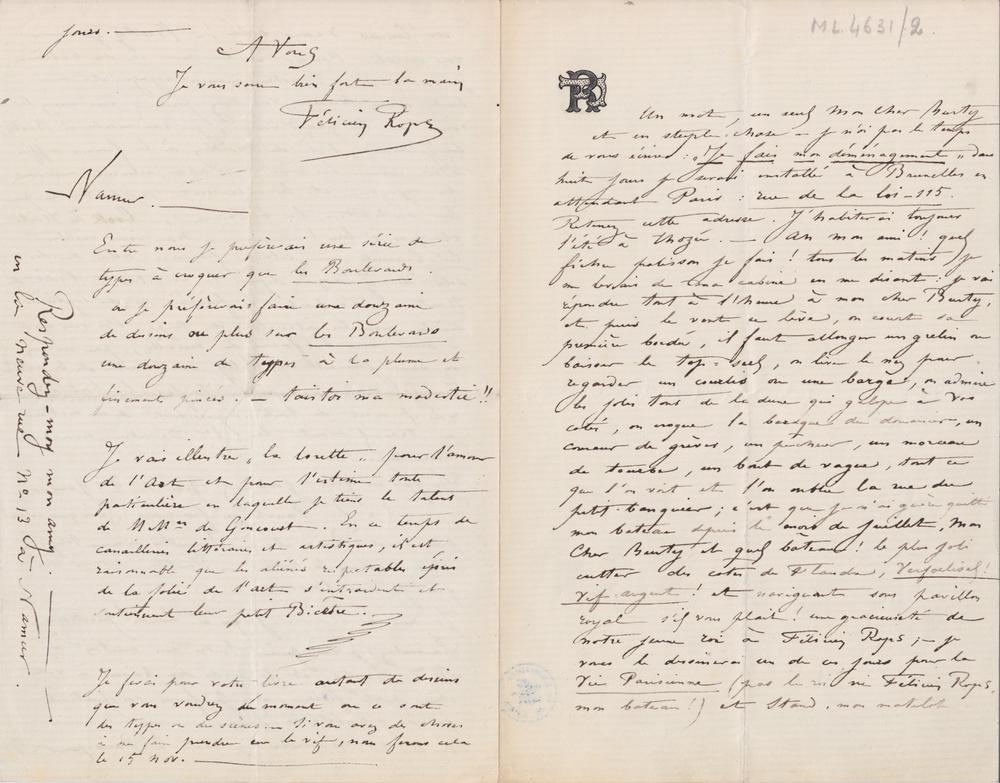 M.L. 4631/2.
FR
Un mot, un seul mon cher Burty
et en style chose — je n'ai pas le temps
de vous écrire : „Je fais mon déménagement" dans
huit jours je serai installé à Bruxelles en
attendant Paris : rue de la loi - 115.
Retenez cette adresse. J'habiterai toujours
l'été à Thozée. — Ah mon ami ! quel
fichu polisson je fais ! tous les matins je
me levais de ma cabine en me disant : je vais
répondre tout à l'heure à mon cher Burty,
et puis le vent se lève, on court sa
première bordée, il faut allonger un grelin ou
baisser le top-seul, on lève le nez pour
regarder un courlis ou une barge, on admire
les jolis tons de la dune qui galope à vos
cotés, on croque la basque du douanier, un
coureur de grèves, un pêcheur, un morceau
de tourbe, un bout de vague, tout ce
que l'on voit et l'on oublie la rue du
petit-banquier ; c'est que je n'ai guère quitté
mon bateau depuis le mois de juillet, mon
Cher Burty et quel bâteau ! le plus joli
cutter des cotes de Flandre,
vif-argent ! et naviguant sous pavillon
royal s'il vous plait ! une gracieuseté de
notre jeune roi à Félicien Rops ; — je
vous le dessinerai un de ces jours pour la
Vie Parisienne (pas le roi ni Félicien Rops,
mon bateau !) et Stand. mon matelot
jours. —
A Vous
Je vous serre bien fort la main
Félicien Rops
Namur. —
Entre nous je préfèrerais une série de
types à croquer que les Boulevards.
ou je préfèrerais faire une douzaine
de dessins ou plus sur les Boulevards
une douzaine de types à la plume et
finement pincés. — tais toi ma modestie !!
Je vais illustrer „la lorette" pour l'amour
de l'Art et pour l'estime toute
particulière en laquelle je tiens le talent
de M.Mrs de Goncourt. En ce temps de
canailleries littéraires et artistiques, il est
raisonnable que les aliénés respectables épris
de la folie de l'art s'entraident et
soutiennent leur petit Bicêtre.
Je ferai pour votre livre autant de dessins
que vous voudrez du moment ou ce sont
des types ou des scènes. — Si vous avez des choses
à me faire prendre sur le vif, nous ferons cela
le 15 Nov. —
Respondez-moy mon amy —
en la neuve rue No 13 à Namur.